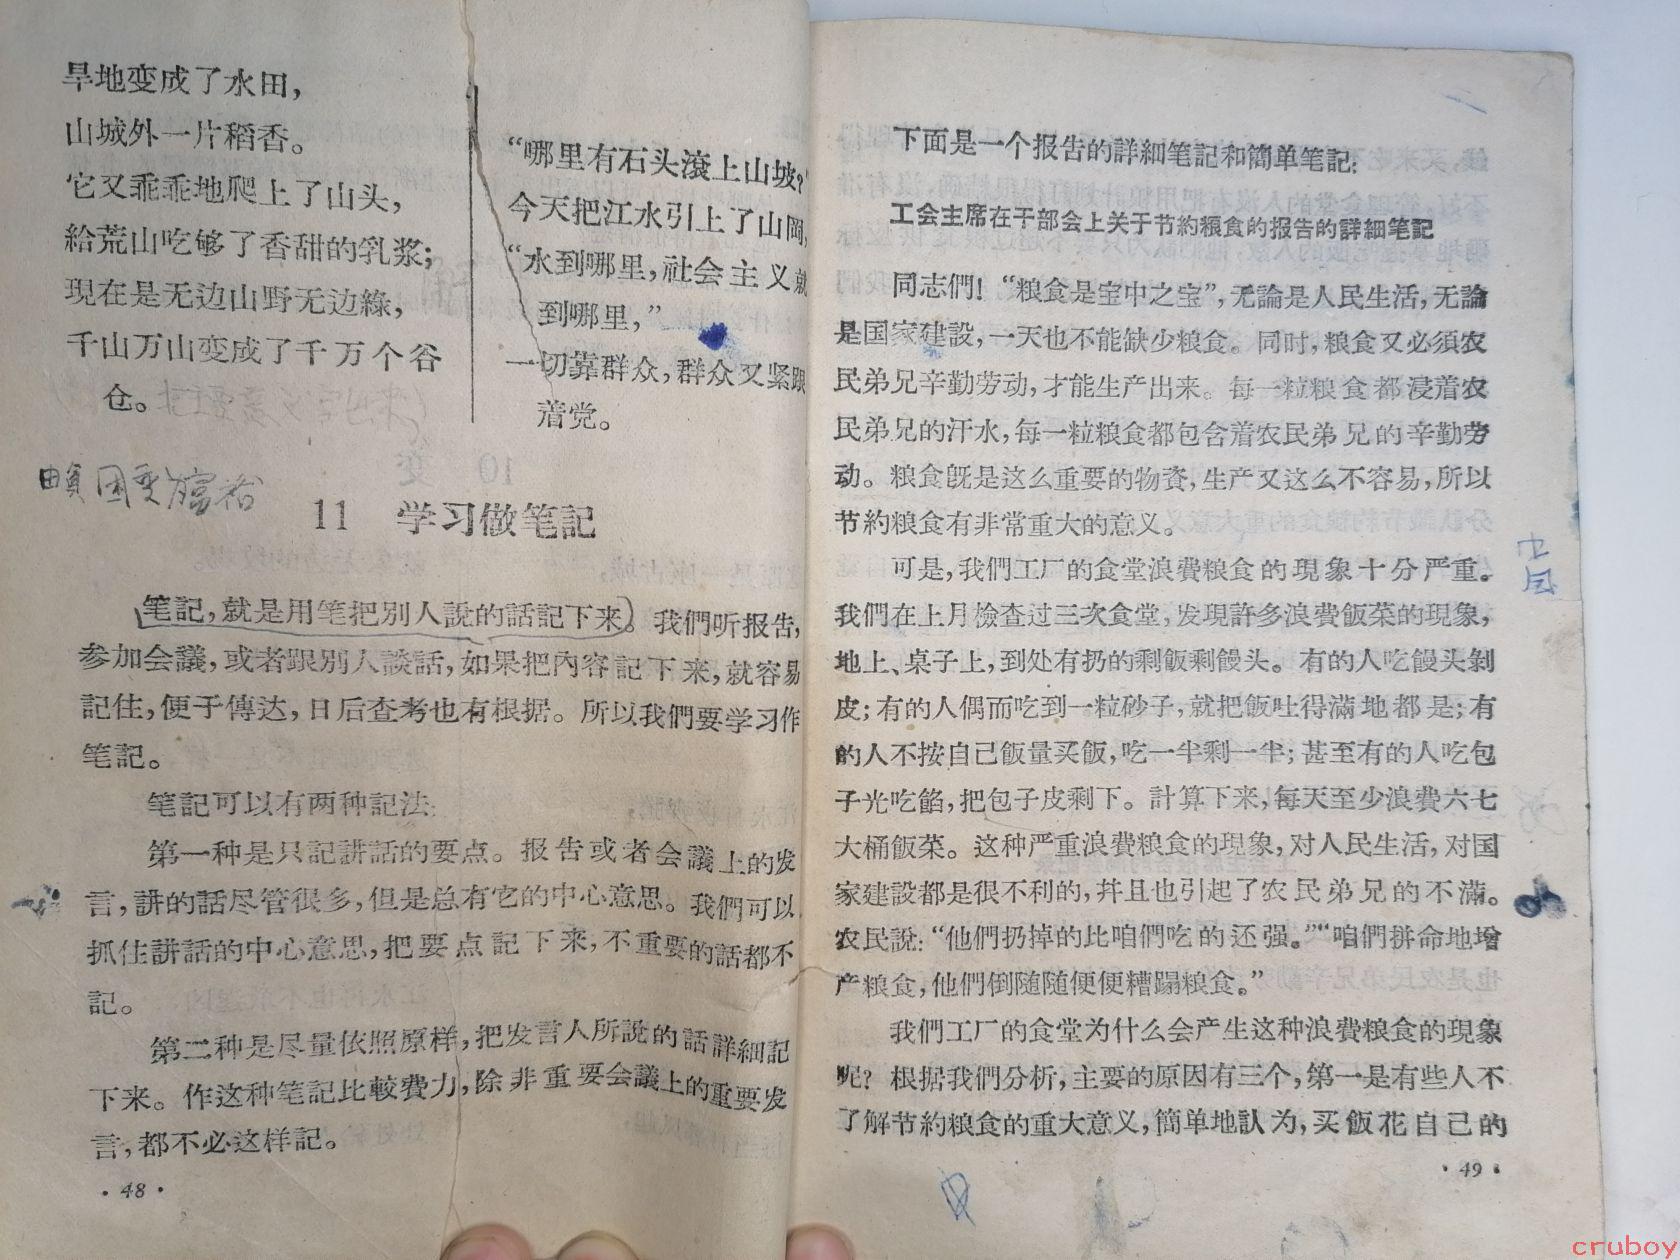 旱地变成了水田，
山城外一片稻香。
它又乖乖地爬上了山头，
給荒山吃够了香甜的乳浆；
現在是无边山野无边綠，
千山万山变成了千万个谷
仓。
“哪里有石头滾上山坡？”
今天把江水引上了山岡，
“水到哪里，社会主义就
到哪里，”
一切靠群众，群众又紧跟
着党。
困变富裕
11 学习做笔記
笔記，就是用笔把別人說的話記下来。我們听报告，
参加会議，或者跟別人談話，如果把內容記下来，就容易
記住，便于傳达，日后查考也有根据。所以我們要学习作
笔記。
笔記可以有两种記法：
第一种是只記講話的要点。报告或者会議上的发
言，講的話尽管很多，但是总有它的中心意思。我們可以
抓住講話的中心意思，把要点記下来，不重要的話都不
記。
第二种是尽量依照原样，把发言人所說的話詳細記
下来。作这种笔記比較費力，除非重要会議上的重要发
言，都不必这样記。
·48·
下面是一个报告的詳細笔記和簡单笔記：
工会主席在干部会上关于节約粮食的报告的詳細笔記
同志們！“粮食是宝中之宝”，无論是人民生活，无論
是国家建設，一天也不能缺少粮食。同时，粮食又必須农
民弟兄辛勤劳动，才能生产出来。每一粒粮食都浸着农
民弟兄的汗水，每一粒粮食都包含着农民弟兄的辛勤劳
动。粮食旣是这么重要的物資，生产又这么不容易，所以
节約粮食有非常重大的意义。
可是，我們工厂的食堂浪費粮食的現象十分严重。
我們在上月檢查过三次食堂，发現許多浪費飯菜的現象，
地上、桌子上，到处有扔的剩飯剩饅头。有的人吃饅头剝
皮；有的人偶而吃到一粒砂子，就把飯吐得滿地都是；有
的人不按自己飯量买飯，吃一半剩一半；甚至有的人吃包
子光吃餡，把包子皮剩下。計算下来，每天至少浪費六七
大桶飯菜。这种严重浪費粮食的現象，对人民生活，对国
家建設都是很不利的，幷且也引起了农民弟兄的不滿。
农民說：“他們扔掉的比咱們吃的还强。”“咱們拼命地增
产粮食，他們倒随随便便糟蹋粮食。”
我們工厂的食堂为什么会产生这种浪費粮食的現象
呢？根据我們分析，主要的原因有三个，第一是有些人不
了解节約粮食的重大意义，簡单地認为，买飯花自己的
·49·
cruboy